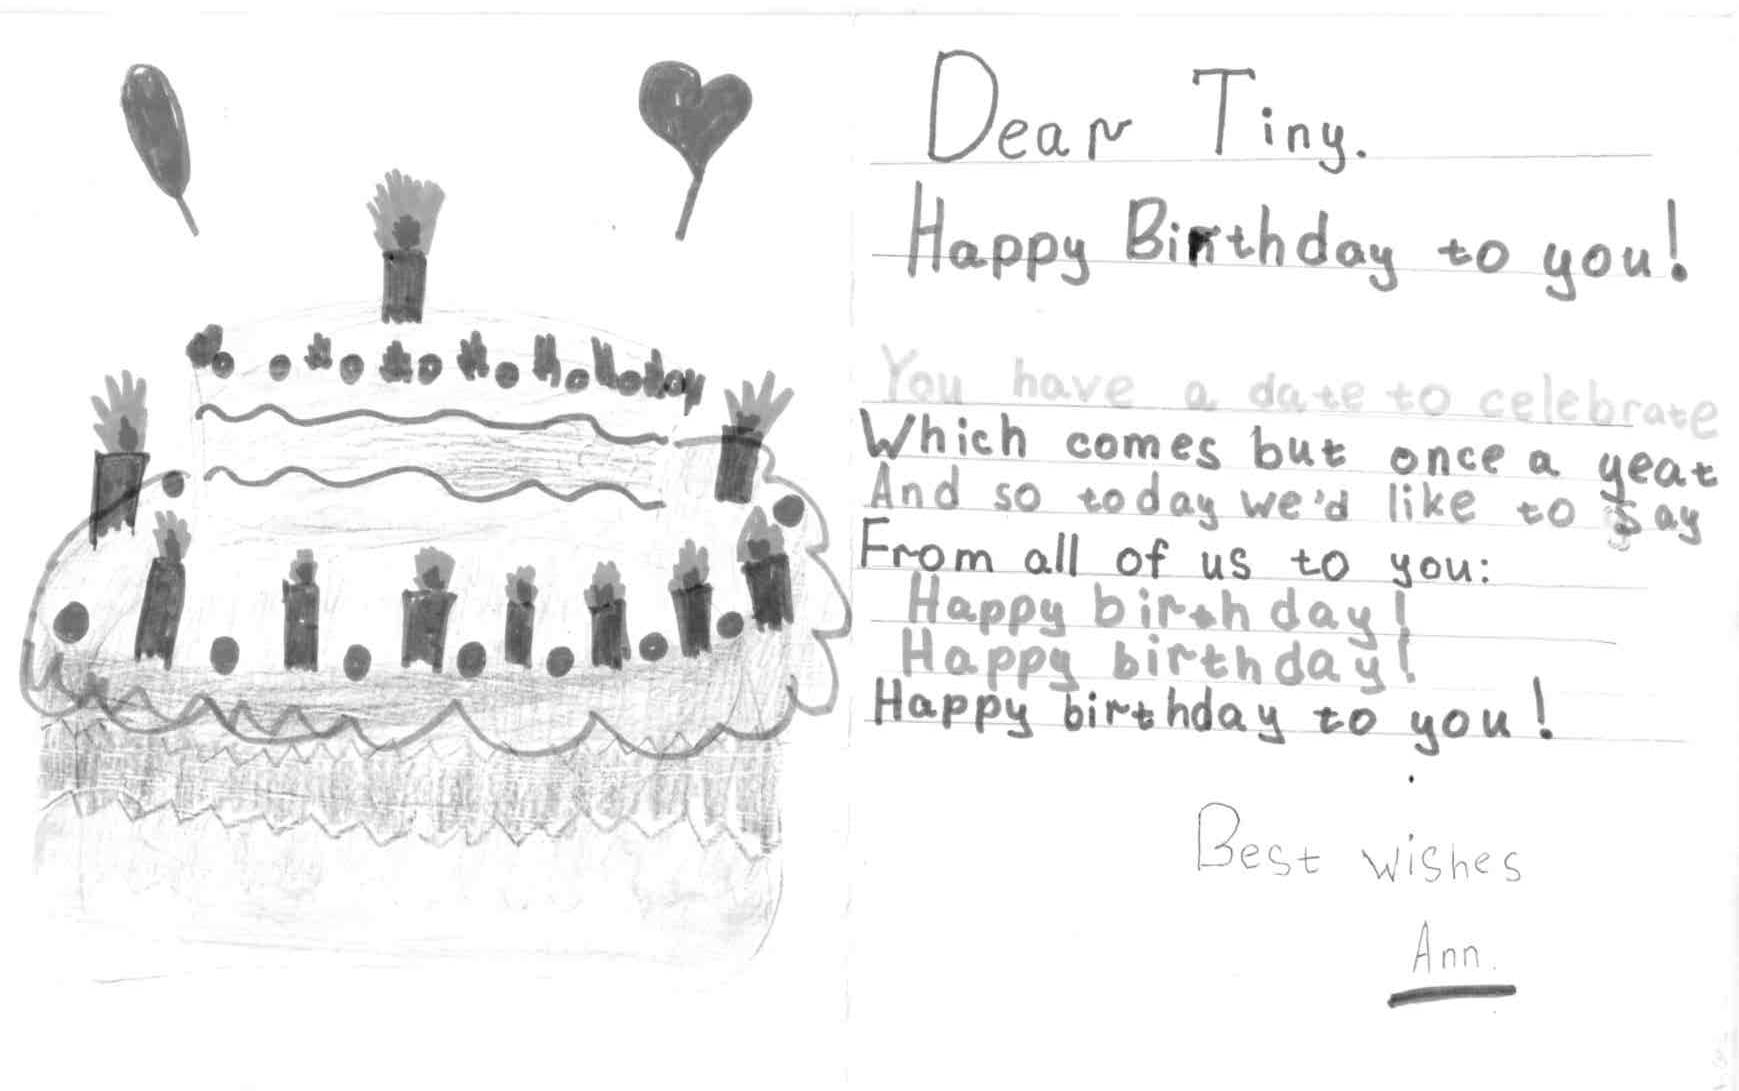 Dear Tiny.
Happy Birthday to you!
You have a date to celebrate
Which comes but once a yeat
And so today we'd like to say
From all of us to you:
Happy birthday!
Happy birthday!
Happy birthday to you!
Best wishes
Ann.